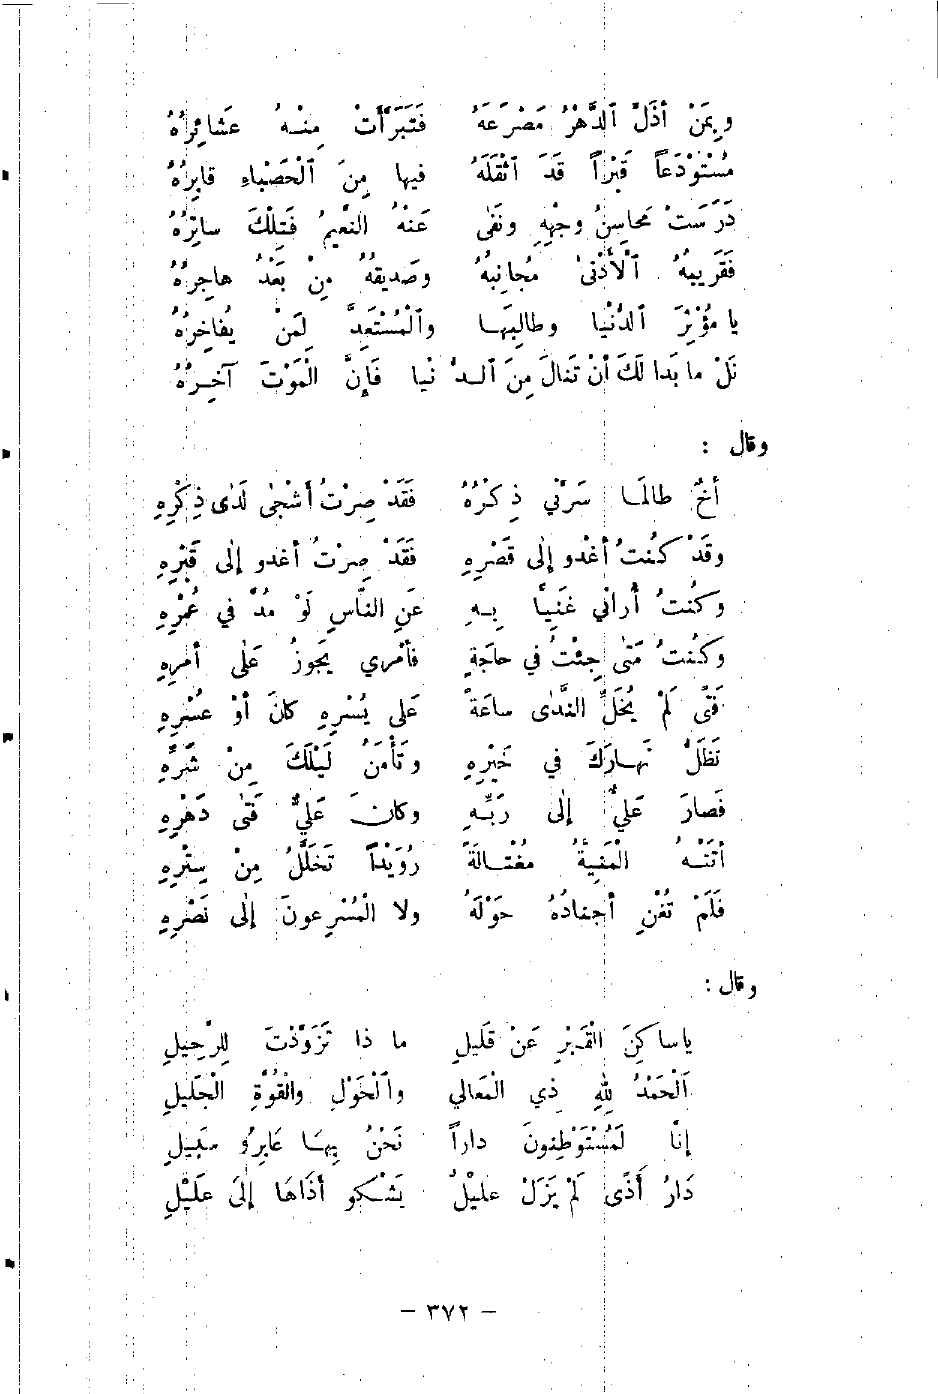 وبِمَنْ أَذَلَّ ٱلدَّهْرُ مَصْرَعَهُ فَتَبَرَّأَتْ مِنْهُ عَشائِرُهُ
مُسْتَوْدَعاً قَبْراً قَدَ ٱثْقَلَهُ فيها مِنَ ٱلْحَصْباءِ قابِرُهُ
دَرَسَتْ مَحاسِنُ وجْهِهِ ونَفَى عَنْهُ النَّعيمُ فَتِلْكَ ساتِرُهُ
فَقَريبُهُ ٱلْأَدْنىٰ مُجانِبُهُ وصَديقُهُ مِنْ بَعْدُ هاجِرُهُ
يا مُؤْثِرَ ٱلدُّنْيا وطالِبَهَا وٱلْمُسْتَعِدَّ لِمَنْ يُفاخِرُهُ
نَلْ ما بَدا لَكَ أَنْ تَنالَ مِنَ ٱلدُّ نْيا فَإِنَّ الْمَوْتَ آخِرُهُ
وقال :
أَخٌ طالَمَا سَرَّني ذِكْرُهُ فَقَدْ صِرْتُ أَشْجٰى لَدٰى ذِكْرِهِ
وقَدْ كُنْتُ أَغْدو إِلٰى قَصْرِهِ فَقَدْ صِرْتُ أَغدو إِلٰى قَبْرِهِ
وكُنتُ أَراني غَنِيّاً بِهِ عَنِ النَّاسِ لَوْ مُدَّ في عُمْرِهِ
وكُنتُ مَتٰى جِئْتُ في حاجَةٍ فأَمْري يَجوزُ عَلٰى أَمرِهِ
فَتًى لَمْ يُخَلِّ النَّدٰى ساعَةً عَلى يُسْرِهِ كانَ أَوْ عُسْرِهِ
تَظَلُّ نَهارَكَ في خَيْرِهِ وتَأْمَنُ لَيْلَكَ مِنْ شَرِّهِ
فَصارَ عَلِيٌّ إِلٰى رَبِّهِ وكانَ عَلِيٌّ فَتٰى دَهْرِهِ
أَتَتْهُ الْمَنِيَّةُ مُغْتالَةً رُوَيْداً تَخَلَّلُ مِنْ سِتْرِهِ
فَلَمْ تُغْنِ أَجنادُهُ حَوْلَهُ ولا الْمُسْرِعونَ إِلٰى نَصْرِهِ
وقال :
ياساكِنَ الْقَبْرِ عَنْ قَليلِ ما ذا تَزَوَّدْتَ لِلرَّحِيلِ
ٱلْحَمْدُ لِلهِ ذي الْمَعالي وٱلْحَوْلِ والْقُوَّةِ الْجَليلِ
إِنَّا لَمُسْتَوْطِنونَ داراً نَحْنُ بِهَا عَابِرُو سَبيلِ
دَارُ أَذًى لَمْ يَزَلْ عليْلٌ يَشْكو أَذَاهَا إِلَى عَلَيْلِ
- ٣٧٢ -